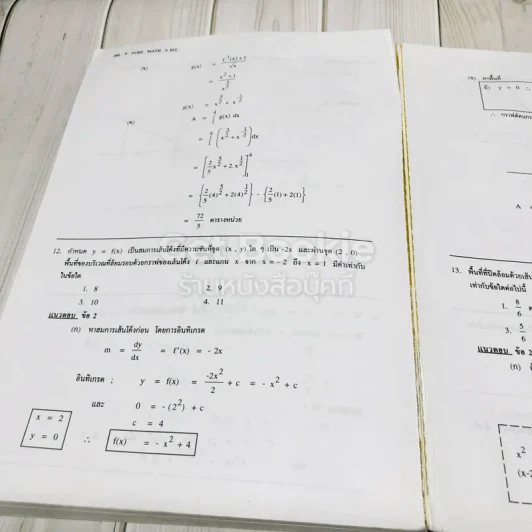 PURE MATH
(ข) g(x) = (f⁻¹(x)+1)/√x
= (x²+1)/x^(1/2)
g(x) = x^(3/2) + x^(-1/2)
(ค) A = ∫ g(x) dx
= ∫ (x^(3/2) + x^(-1/2)) dx
= [2/5 x^(5/2) + 2.x^(1/2)]₁⁴
= {2/5 (4)^(5/2) + 2(4)^(1/2)} - {2/5 (1) + 2(1)}
= 72/5 ตารางหน่วย
12. กำหนด y = f(x) เป็นสมการเส้นโค้งที่มีความชันที่จุด (x , y) ใด ๆ เป็น -2x และผ่านจุด (2 , 0)
พื้นที่ของบริเวณที่ล้อมรอบด้วยกราฟของเส้นโค้ง f และแกน x จาก x = -2 ถึง x = 1 มีค่าเท่ากับ
ในข้อใด
1. 8 2. 9
3. 10 4. 11
แนวตอบ ข้อ 2
(ก) หาสมการเส้นโค้งก่อน โดยการอินทิเกรต
m = dy/dx = f'(x) = - 2x
อินทิเกรต ; y = f(x) = -2x²/2 + c = - x² + c
และ 0 = - (2²) + c
c = 4
x = 2
y = 0 ∴ f(x) = - x² + 4
Get Bookie
ร้านหนังสือบุ๊คกี้
(ข) หาพื้นที่
ถ้า y = 0
∴ กราฟตัดแกน
A =
=
13. พื้นที่ที่ปิดล้อมด้วยเส้น
เท่ากับข้อใดต่อไปนี้
1. 8/6
3. 5/6
แนวตอบ ข้อ 2
(ก)
x²
(x-2